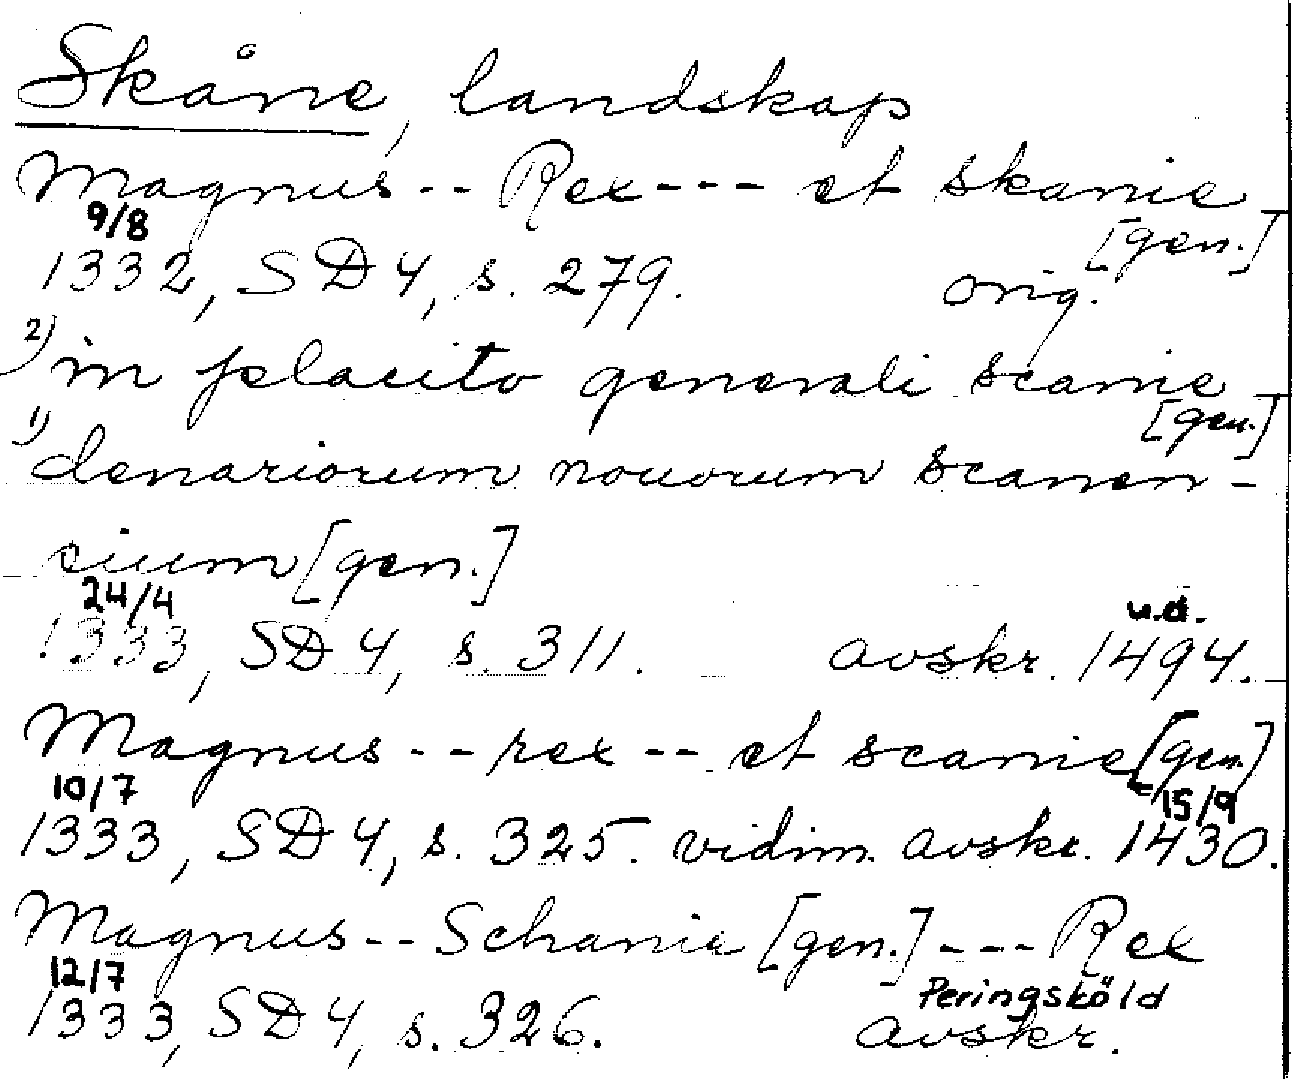 Skåne, landskap
Magnus -- Rex --- et skanie
[gen.]
9/8
1332, SD 4, s. 279. orig.
2) in placito generali scanie
[gen.]
1) denariorum nouorum scanen-
cium [gen.]
24/4 u.d.
1333, SD 4, s. 311. avskr. 1494.
Magnus -- rex -- et scanie [gen.]
10/7 15/9
1333, SD 4, s. 325. vidim. avskr. 1430.
Magnus -- Schanie [gen.] --- Rex
12/7 Peringsköld
1333, SD 4, s. 326. avskr.